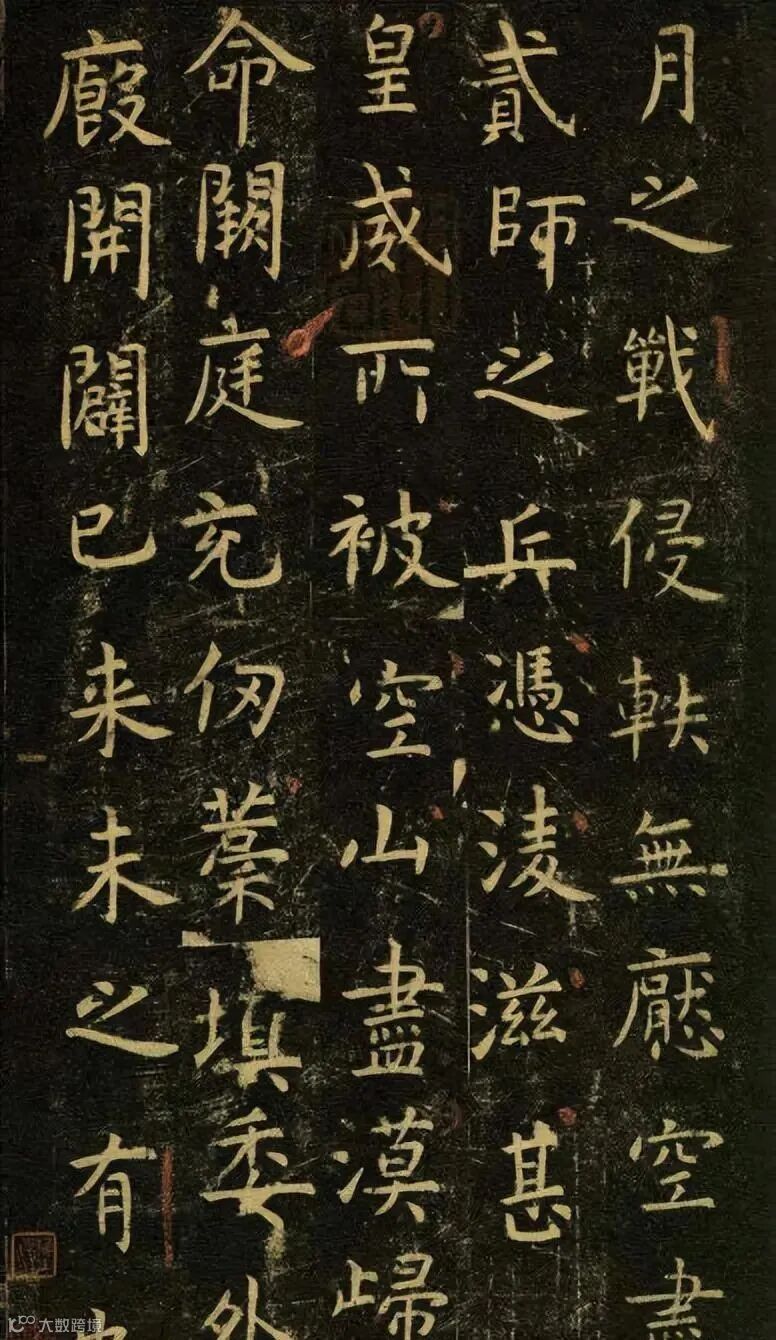 月之戰侵軼無厭空盡
貳師之兵憑凌滋甚
皇威所被空山盡漠歸
命闕庭充仞藁填委外
廄開闢已来未之有
大数跨境